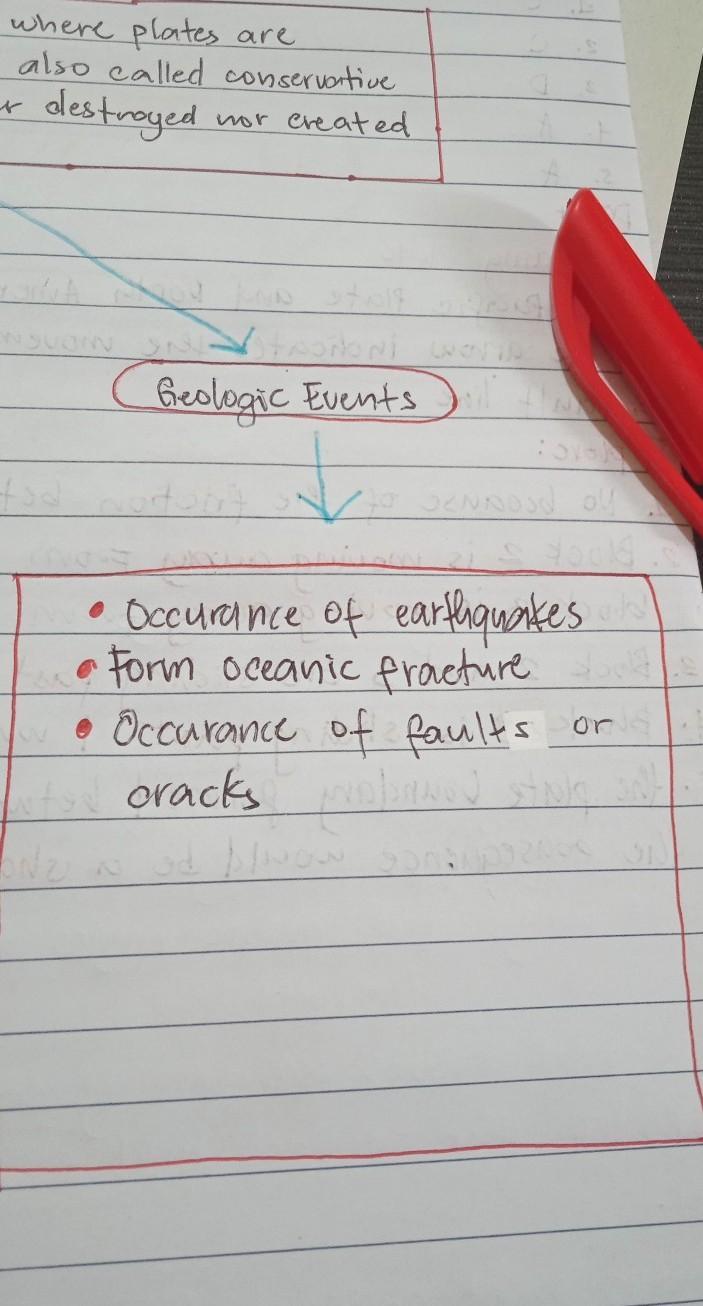 where plates are
also called conservative
r destroyed nor created
Geologic Events
• Occurance of earthquakes
• Form oceanic fracture
• Occurance of faults or
cracks